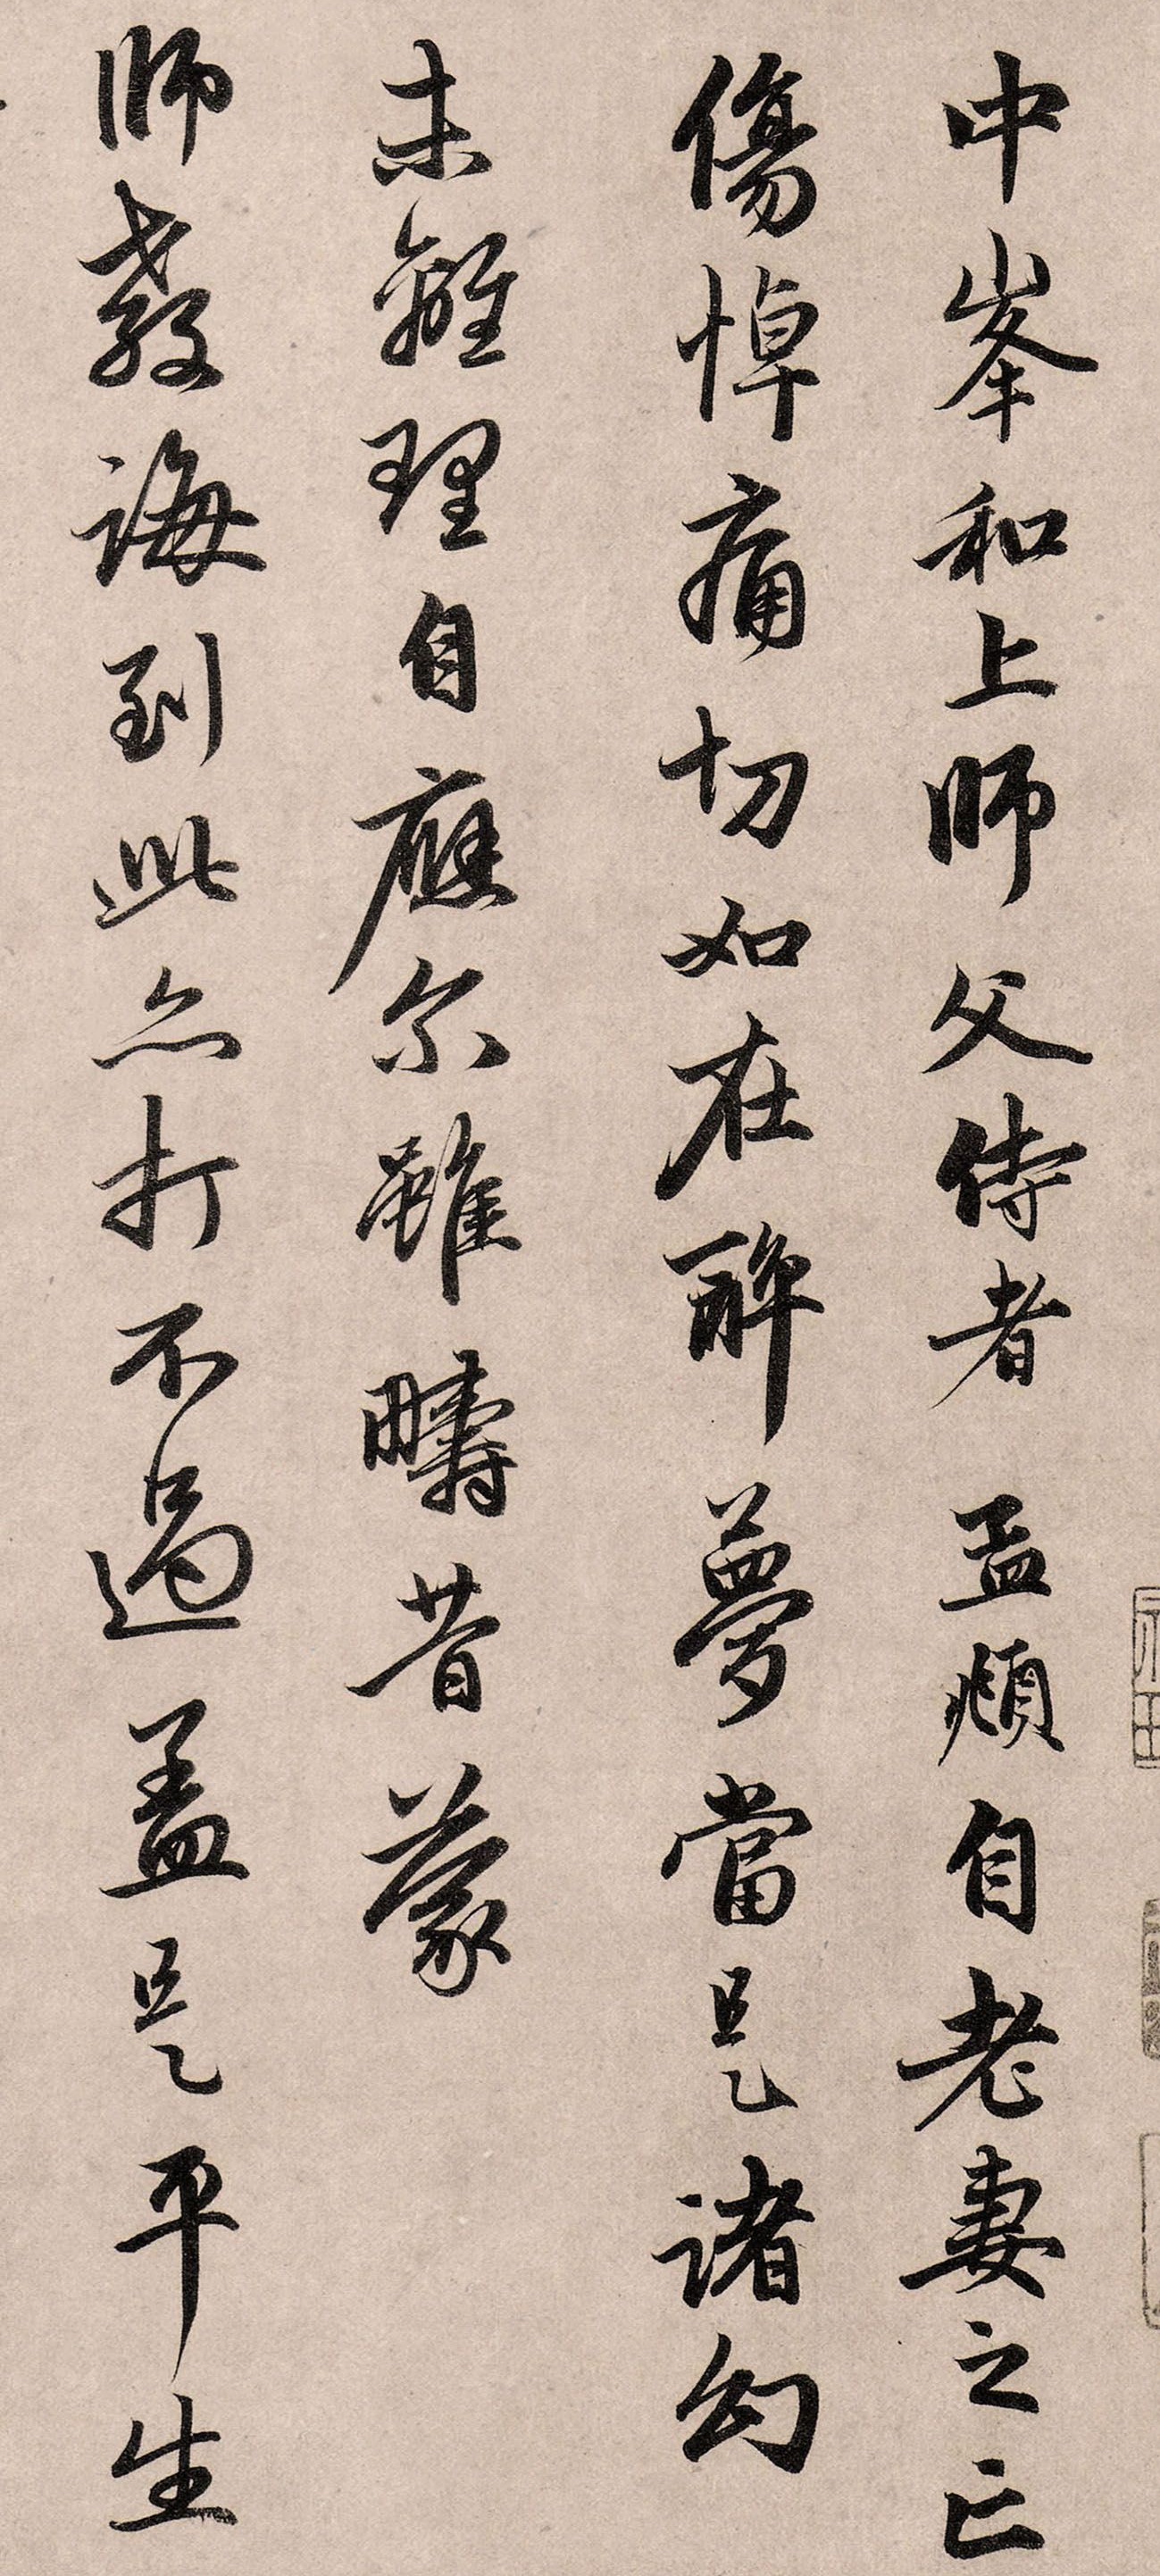 中峯和上師父侍者 孟頫自老妻之亡
傷悼痛切如在醉夢當是諸幻
未離理自應尔雖疇昔蒙
師教誨到此亦打不過蓋是平生